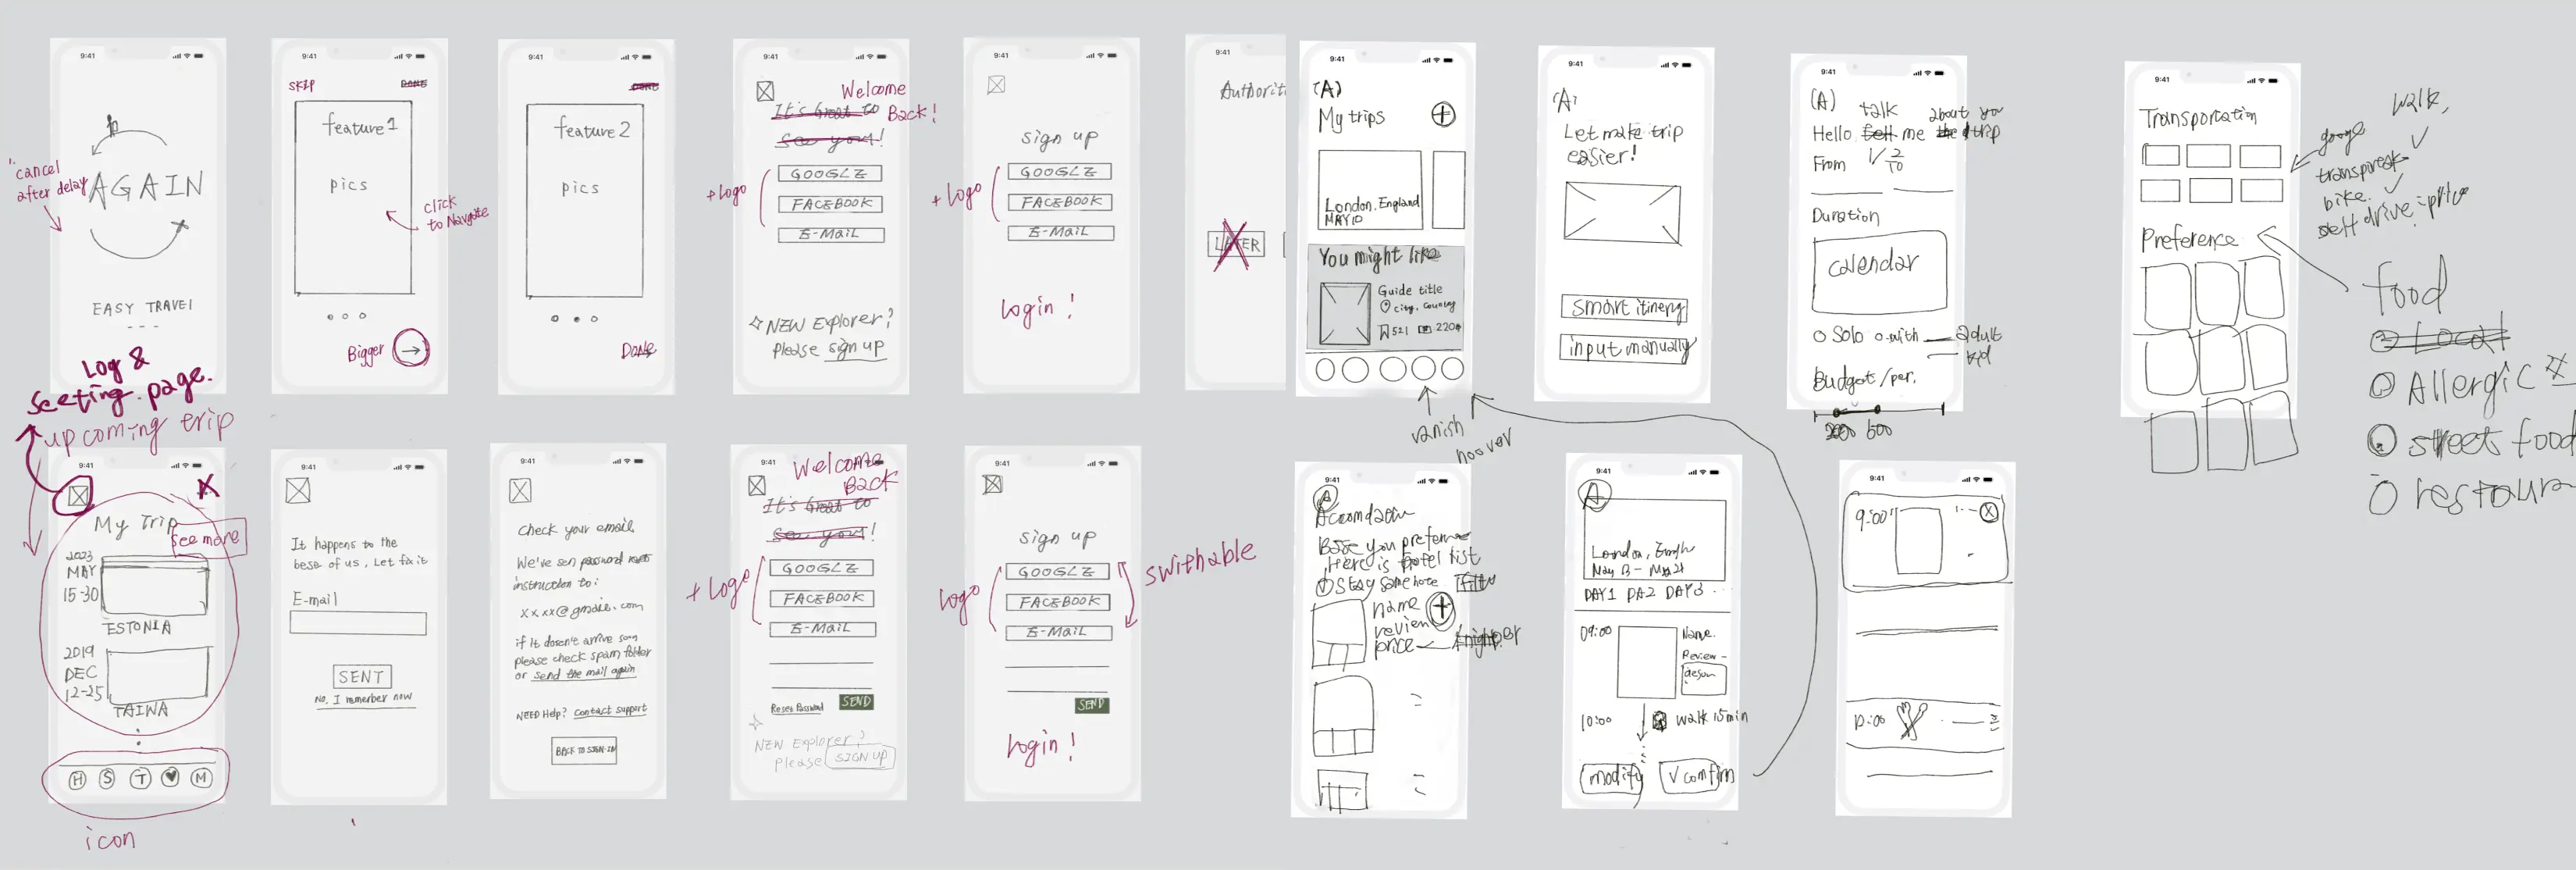 9:41
"cancel
after delay
AGAIN
EASY TRAVEl
9:41
SKIP
DONE
feature 1
pics
click
to Navgate
Bigger
9:41
DONE
feature 2
pics
DONE
9:41
Welcome
Back!
It's Great to
See you!
+ Logo
GOOGLE
FACEBOOK
E-MAiL
NEW Explorer?
Please sign up
9:41
sign up
+ Logo
GOOGLE
FACEBOOK
E-MAiL
Login !
9:41
Authoriti
LATER
9:41
(A)
My trips
London, England
MAY10
You might like
Guide title
city, Country
521
220
vanish
hoover
9:41
(A)
Let make trip
easier!
smart itinerg
input manually
9:41
(A)
talk
about you
Hello tell me the trip
From 1/2/10
Duration
calendar
Solo
with
adult
kid
Budget/per.
500
9:41
Transportation
walk,
google
bike
self drive
Preference
food
Local
Allergic
street food
restaur
Log &
seeting page.
upcoming trip
9:41
My Trip
see more
2023
MAY
15-30
ESTONIA
2019
DEC
12-25
TAIWA
H S T M
icon
9:41
It happens to the
bese of us, Let fix it
E-mail
SENT
No, I remember now
9:41
Check your email
We've sen password reset
instruction to:
xxxx@gmail.com
if it dosen't arrive soon
please check spam folder
or send the mail again
NEED Help? Contact support
BACK TO SIGN-IN
9:41
Welcome
Back
It's Great to
See you!
+ Logo
GOOGLE
FACEBOOK
E-MAiL
Reset Password
SEND
NEW Explorer?
please SIGN UP
9:41
sign up
Logo
swithable
GOOGLE
FACEBOOK
E-MAiL
SEND
Login !
9:41
A
Accomdation
Base you preference
Here is hotel list
stay same hote
name
review
price
9:41
A
London, Englan
May 13 -
DAY1 DA2 DAY3
09:00
Name.
Review -
10:00
walk 15min
modify
V comfirm
9:41
9:00
10:00